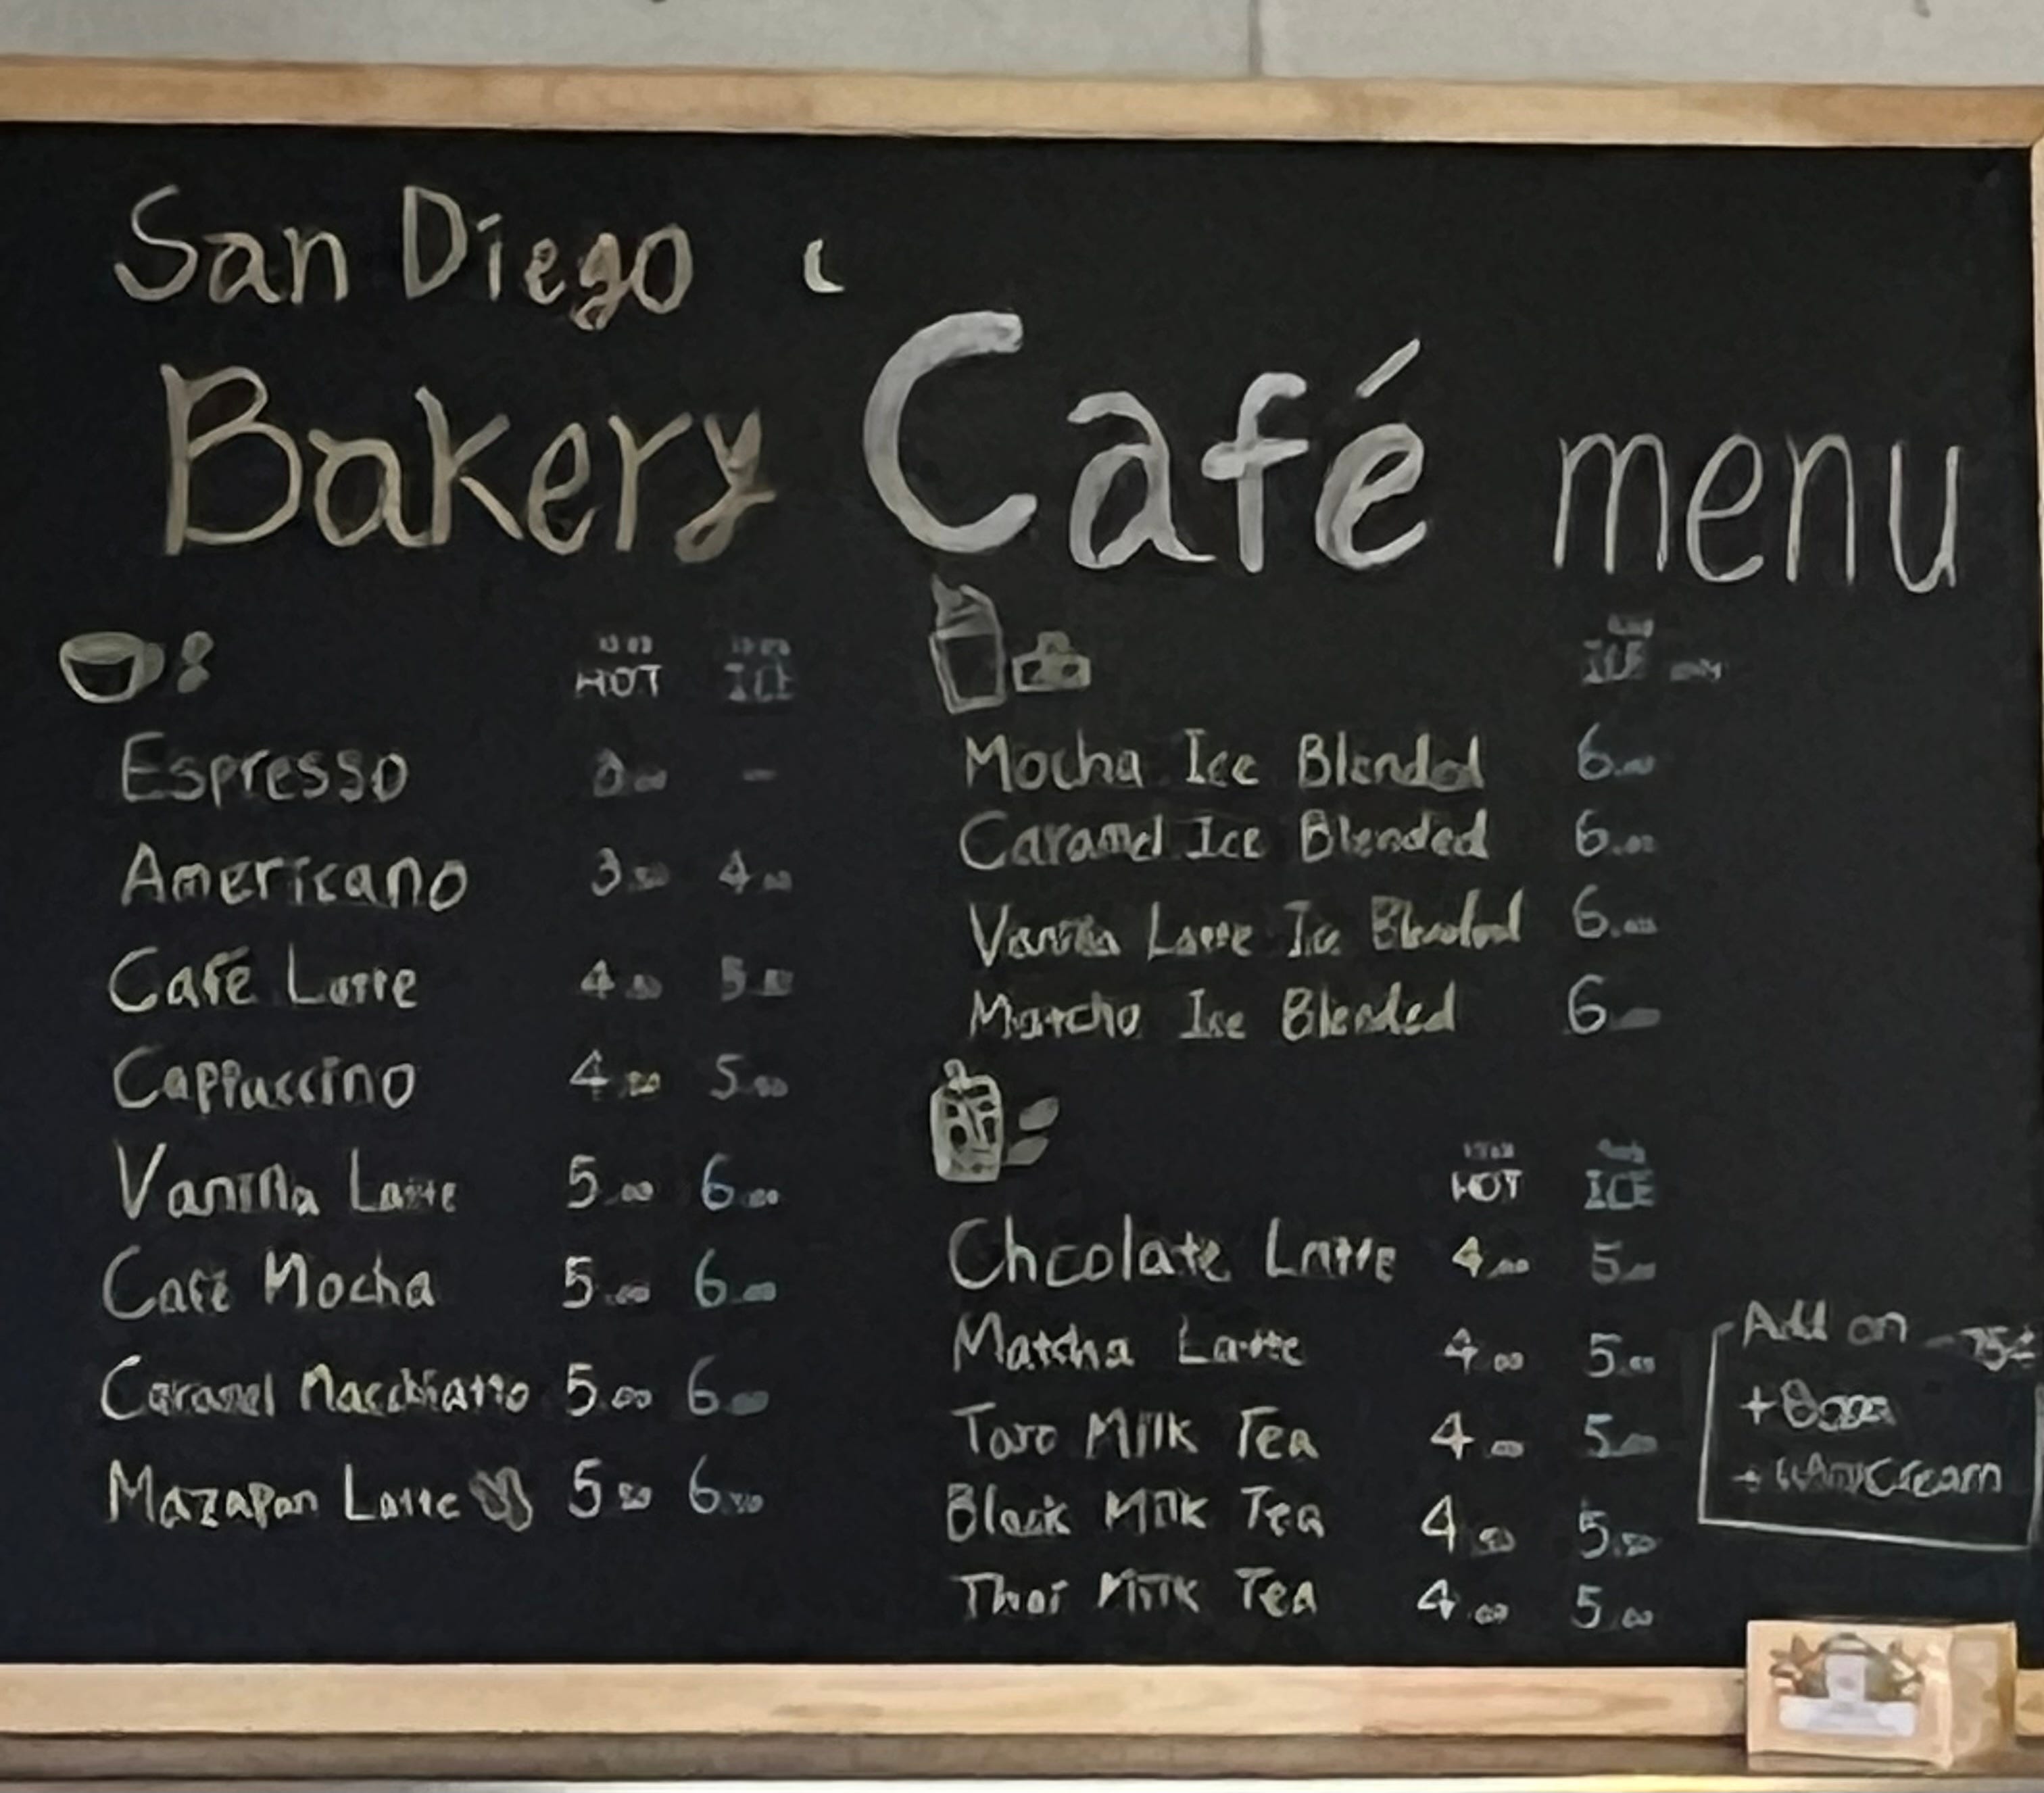 San Diego
Bakery Café menu
HOT ICE
Espresso -
Americano 3.50 4.
Café Latte 4. 5.
Cappuccino 4. 5.
Vanilla Latte 5.00 6.00
Café Mocha 5.00 6.00
Caramel Macchiatto 5.00 6.00
Mazapan Latte 5.50 6.50
ICE only
Mocha Ice Blended 6.00
Caramel Ice Blended 6.00
Vanilla Latte Ice Blended 6.00
Matcha Ice Blended 6.
HOT ICE
Chcolate Latte 4.00 5.00
Matcha Latte 4.00 5.00
Taro Milk Tea 4.00 5.00
Black Milk Tea 4.50 5.50
Thai Milk Tea 4.00 5.00
Add on - 75¢
+ Boba
+ Cream